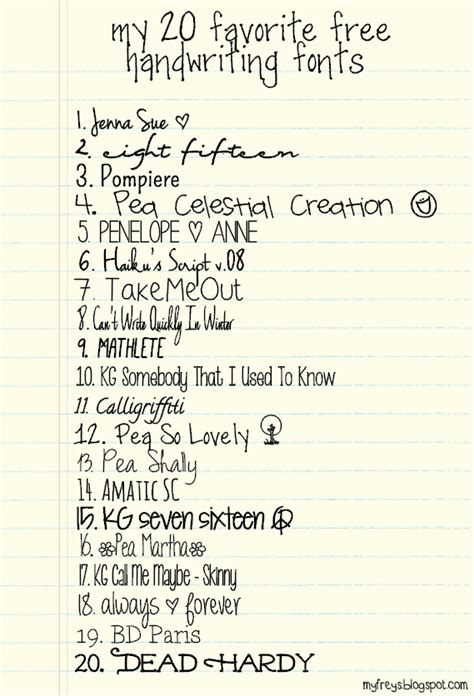 my 20 favorite free
handwriting fonts
1. Jenna Sue ♡
2. eight fifteen
3. Pompiere
4. Pea Celestial Creation
5. PENELOPE ♡ ANNE
6. Haiku's Script v.08
7. TakeMeOut
8. Can't Write Quickly In Winter
9. MATHLETE
10. KG Somebody That I Used To Know
11. Calligriffiti
12. Pea So Lovely
13. Pea Shally
14. AMATIC SC
15. KG seven sixteen
16. Pea Martha
17. KG Call Me Maybe - Skinny
18. always ♡ forever
19. BD Paris
20. DEAD HARDY
myfreys.blogspot.com